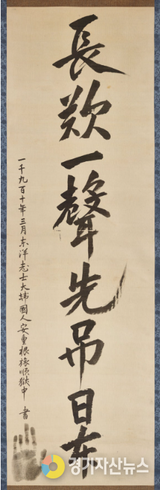 長歎一聲先吊日本
一千九百十年三月東洋志士大韓國人安重根旅順獄中書
경기자산뉴스